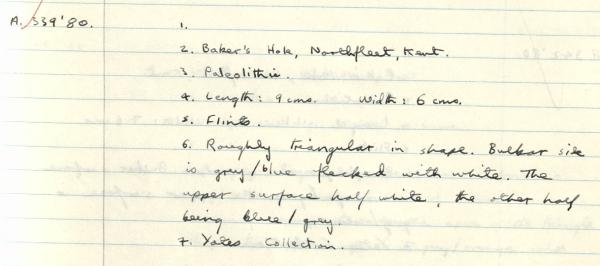 A. 339'80.
1.
2. Baker's Hole, Northfleet, Kent.
3. Paleolithic.
4. Length: 9 cms. Width: 6 cms.
5. Flint.
6. Roughly triangular in shape. Bulbar side
is grey/blue flecked with white. The
upper surface half white, the other half
being blue/grey.
7. Yates Collection.